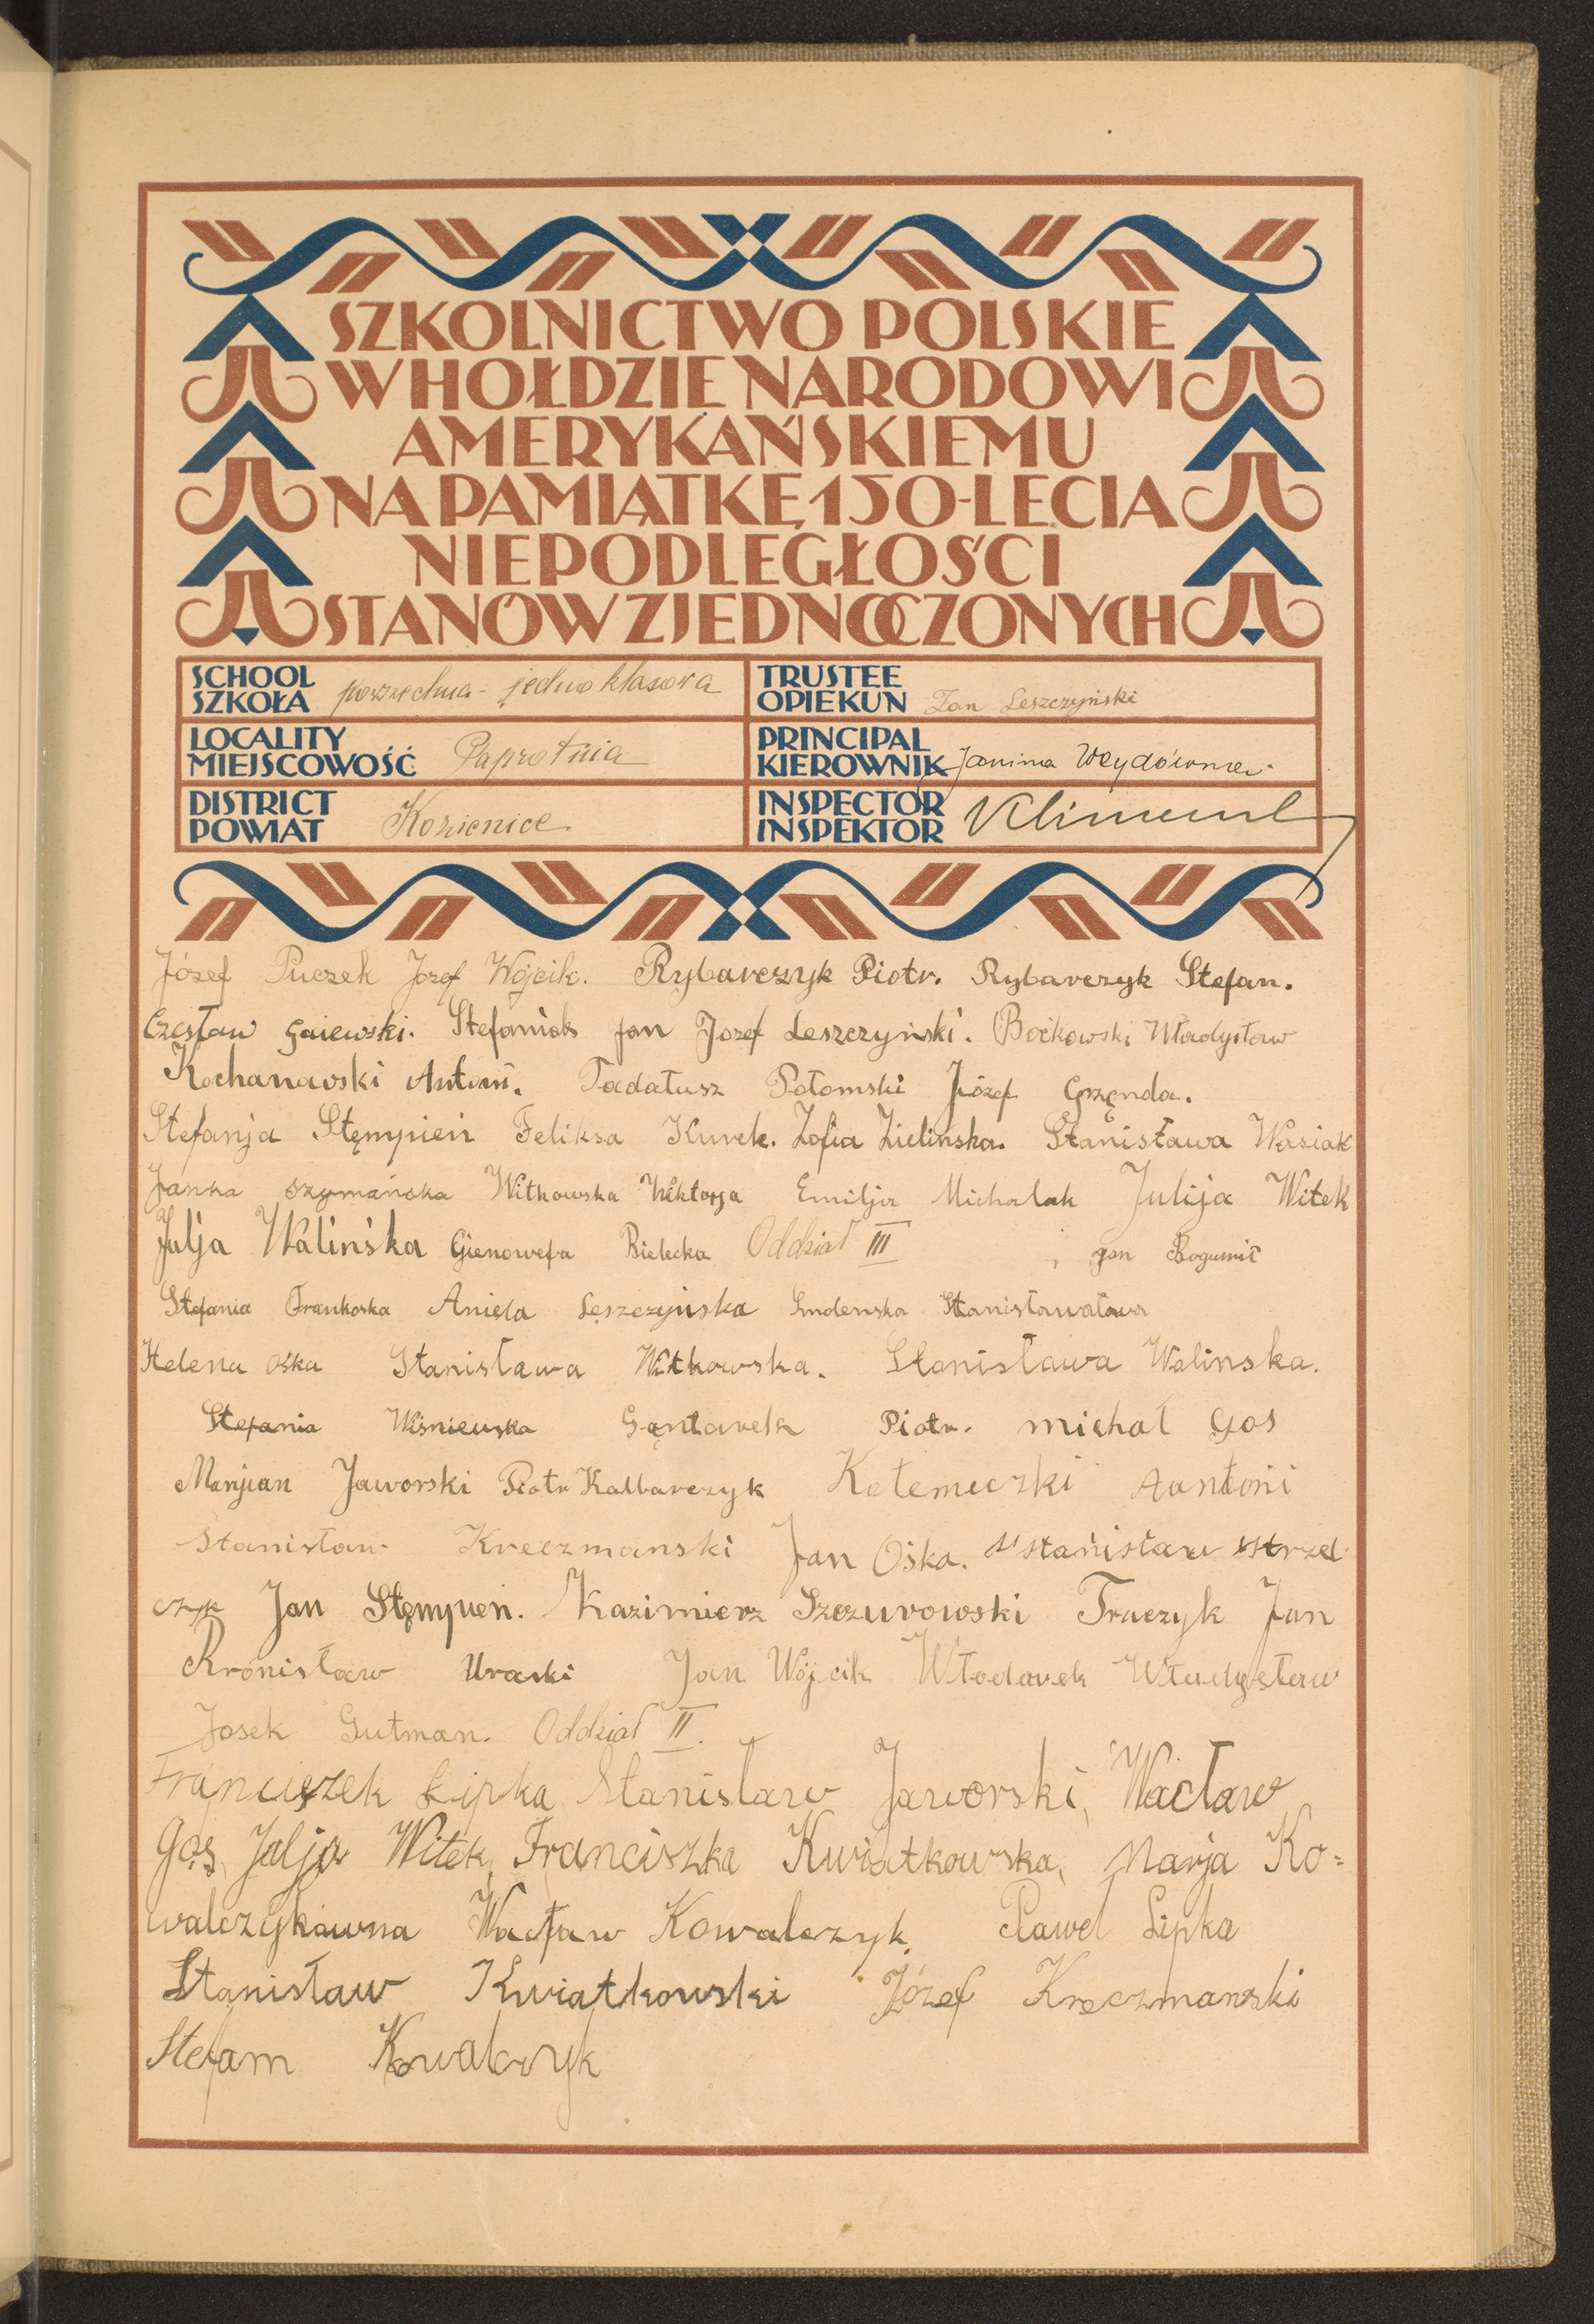 SZKOLNICTWO POLSKIE
W HOŁDZIE NARODOWI
AMERYKAŃSKIEMU
NA PAMIĄTKĘ 150-LECIA
NIEPODLEGŁOŚCI
STANÓW ZJEDNOCZONYCH
SCHOOL
SZKOŁA powszechna - jednoklasowa
TRUSTEE
OPIEKUN Jan Leszczyński
LOCALITY
MIEJSCOWOŚĆ Paprotnia
PRINCIPAL
KIEROWNIK Janina
DISTRICT
POWIAT Kozienice
INSPECTOR
INSPEKTOR
Józef Puczek Józef Wójcik. Rybarczyk Piotr. Rybarczyk Stefan.
Czesław Gaiewski. Stefaniak Jan Jozef Leszczyński. Boćkowski Władysław
Kochanowski Antoni. Tadatusz Potomski Józef Grzęnda.
Stefanja Stęmpień Feliksa Kurek. Zofia Zielińska. Stanisława Wasiak
Janka Szymańska Witkowska Wiktorja Emilja Michalak Julija Witek
Julja Walińska Gienowefa Bielecka Oddział III Jan Bogumił
Stefania Frankoska Aniela Leszczyńska Smolenska Stanisławatawa
Helena Ośka Stanisława Witkowska. Stanisława Walinska.
Stefania Wiśniewska Gąntarek Piotr. Michał Gos
Marijan Jaworski Piotr Kalbarczyk Kotemeczki Aantoni
Stanisław Kreczmanski Jan Ośka. Stanisław Strzel
czyk Jan Stęmpien. Kazimierz Szczurowski Traczyk Jan
Bronisław Uraski Jan Wójcik Włodarek Władysław
Josek Gutman. Oddział II.
Franciszek Lipka Stanisław Jaworski, Wacław
Gos, Julja Witek, Franciszka Kwiatkowska, Marja Ko=
walczykówna Wacław Kowalczyk, Paweł Lipka
Stanisław Kwiatkowski Józef Kreczmanski
Stefam Kowalczyk